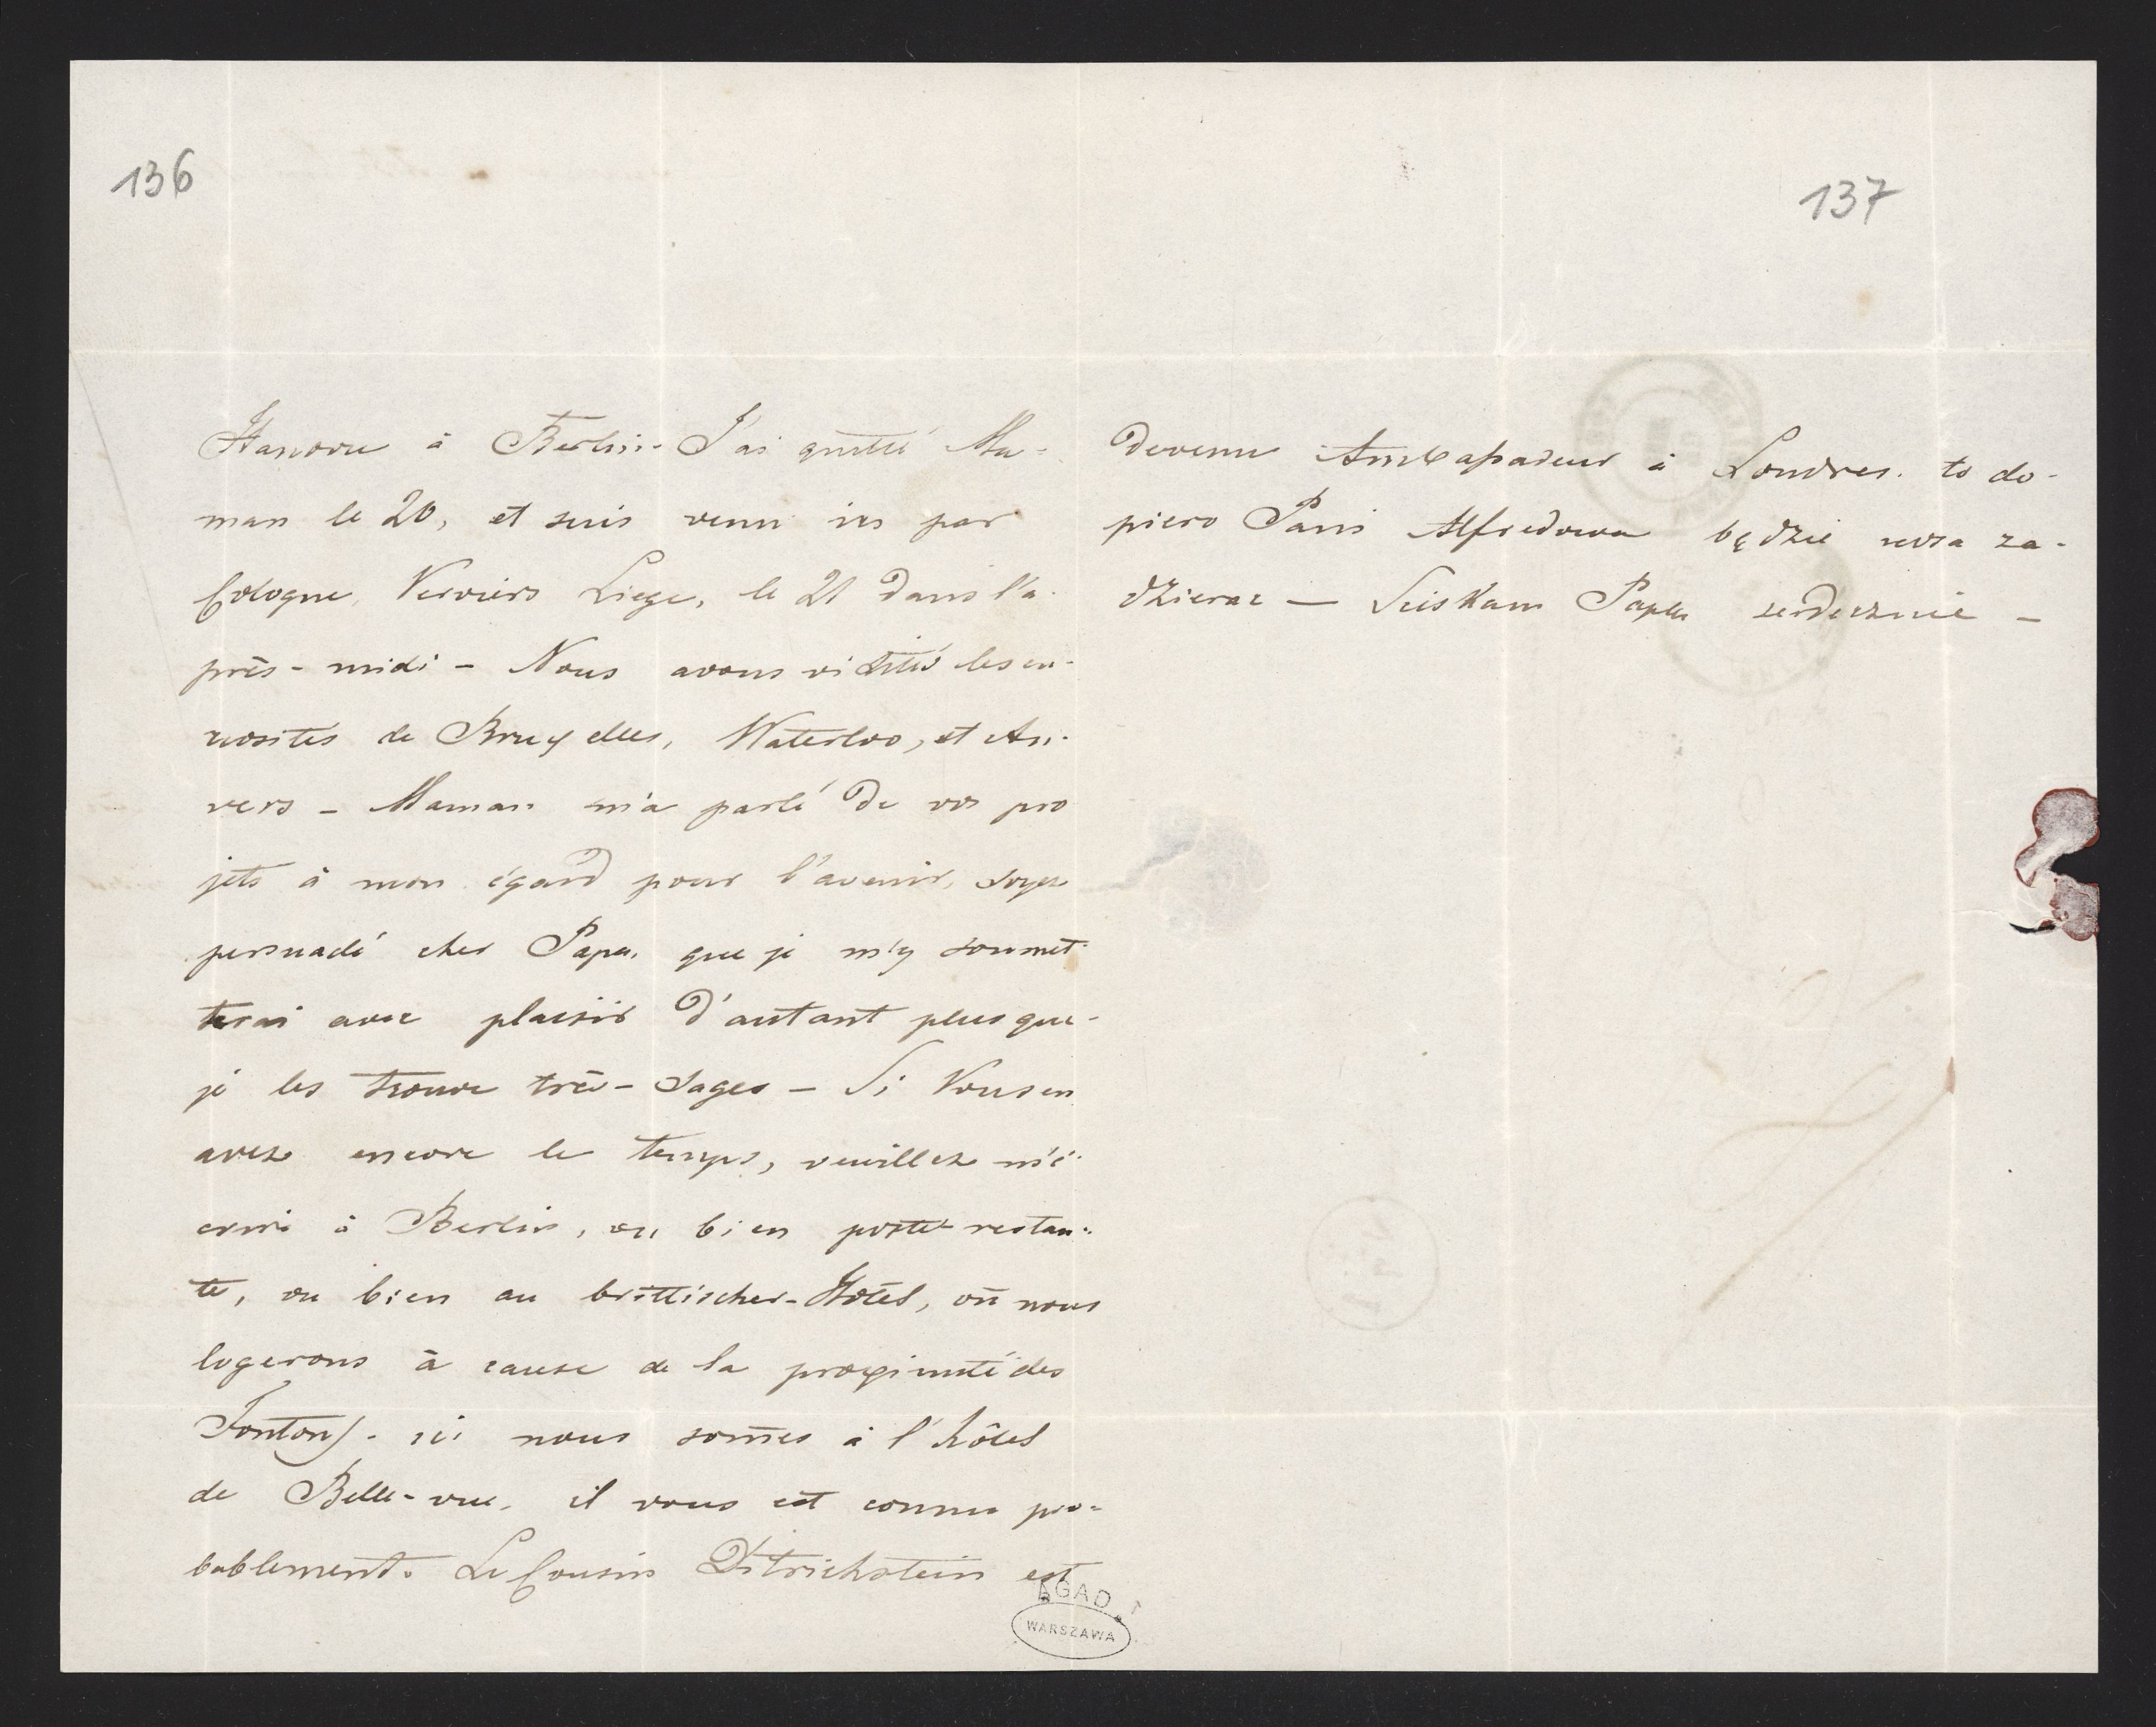 136
Hanovre à Berlin. J'ai quitté Ma-
man le 20, et suis venu ici par
Cologne, Verviers Liege, le 21 dans l'a-
près-midi - Nous avons visité les cu-
riosités de Bruxelles, Waterloo, et An-
vers - Maman m'a parlé de vos pro
jets à mon égard pour l'avenir, soyez
persuadé cher Papa, que je m'y soumet-
terai avec plaisir d'autant plus que
je les trouve très-sages - Si Vous en
avez encore le temps, veuillez m'é-
crire à Berlin, ou bien poste restan-
te, ou bien au brittischer-Hôtel, où nous
logerons à cause de la proximité des
Fonton). ici nous som̄es à l'hôtel
de Belle-vue, il vous est connu pro-
bablement. Le Cousin Ditrichstein est
AGAD
WARSZAWA
137
devenu Ambassadeur à Londres. to do-
piero Pani Alfredowa będzie nosa za-
dzierac - Sciskam Papę serdecznie -